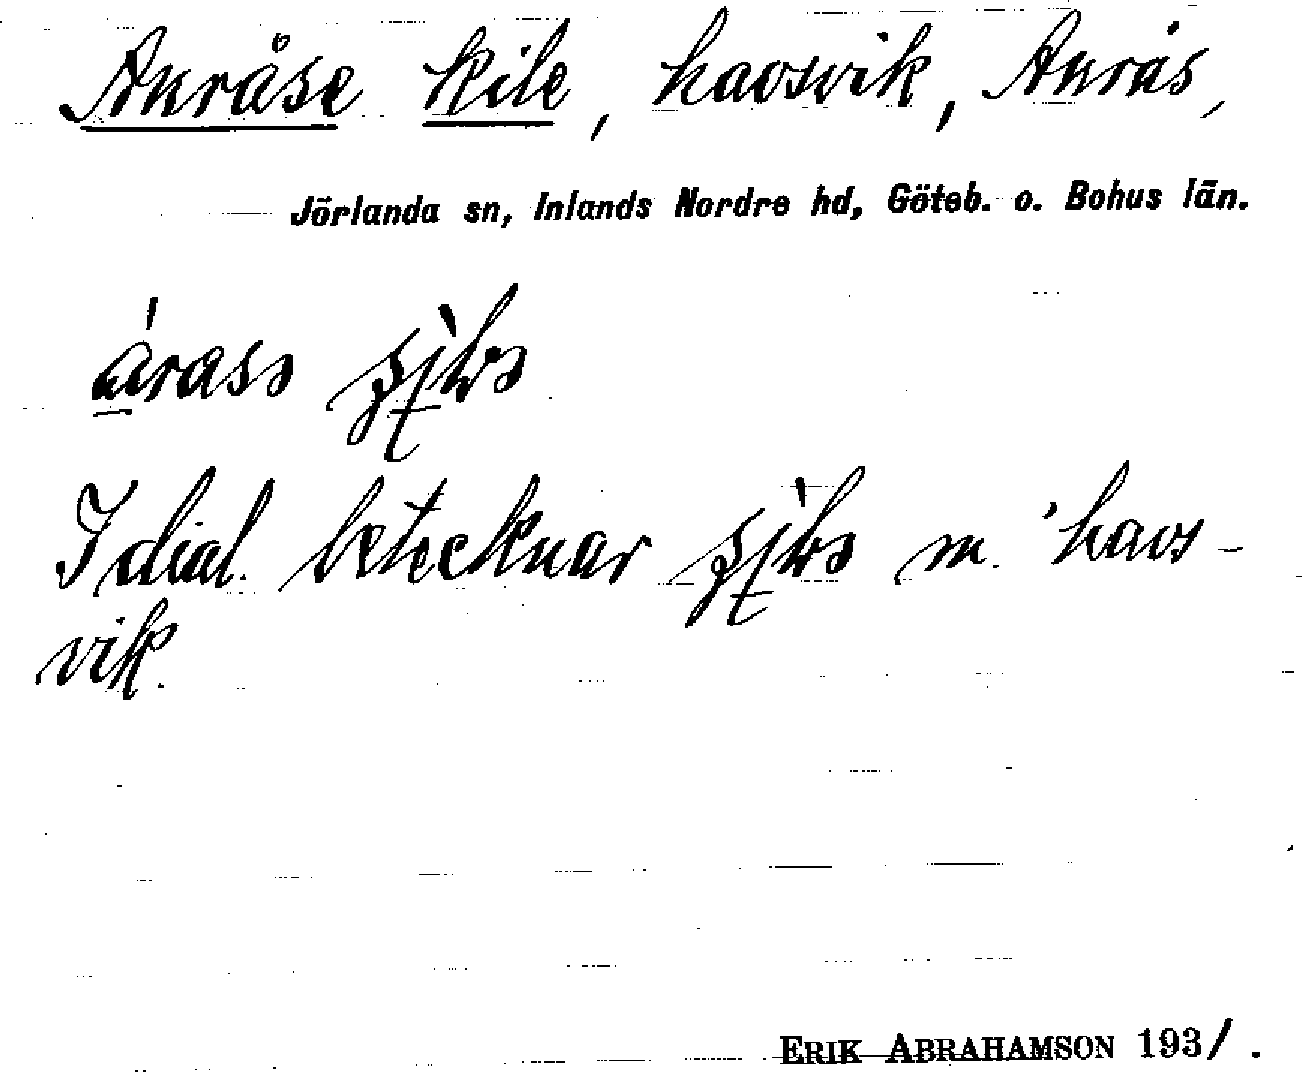 Anråse kile, havsvik, Anrås,
Jörlanda sn, Inlands Nordre hd, Göteb. o. Bohus län.
I dial. betecknar m. 'havs-
vik.
ERIK ABRAHAMSON 1931.